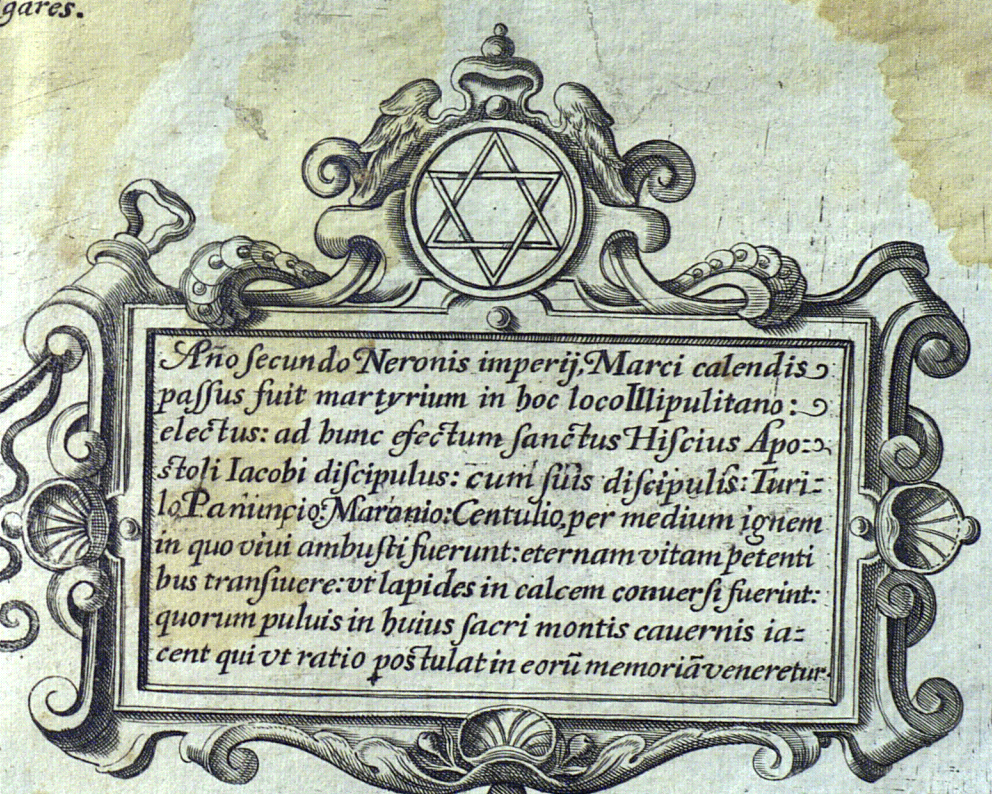 gares.
Año secundo Neronis imperij; Marci calendis
passus fuit martyrium in hoc loco Illipulitano:
electus: ad hunc efectum sanctus Hiscius Apo:
stoli Iacobi discipulus: cum suis discipulis: Turi:
lo, Panuncio: Maronio: Centulio, per medium ignem
in quo viui ambusti fuerunt: eternam vitam petenti
bus transiuere: vt lapides in calcem conuersi fuerint:
quorum puluis in huius sacri montis cauernis ia:
cent qui vt ratio postulat in eorū memoriā veneretur.